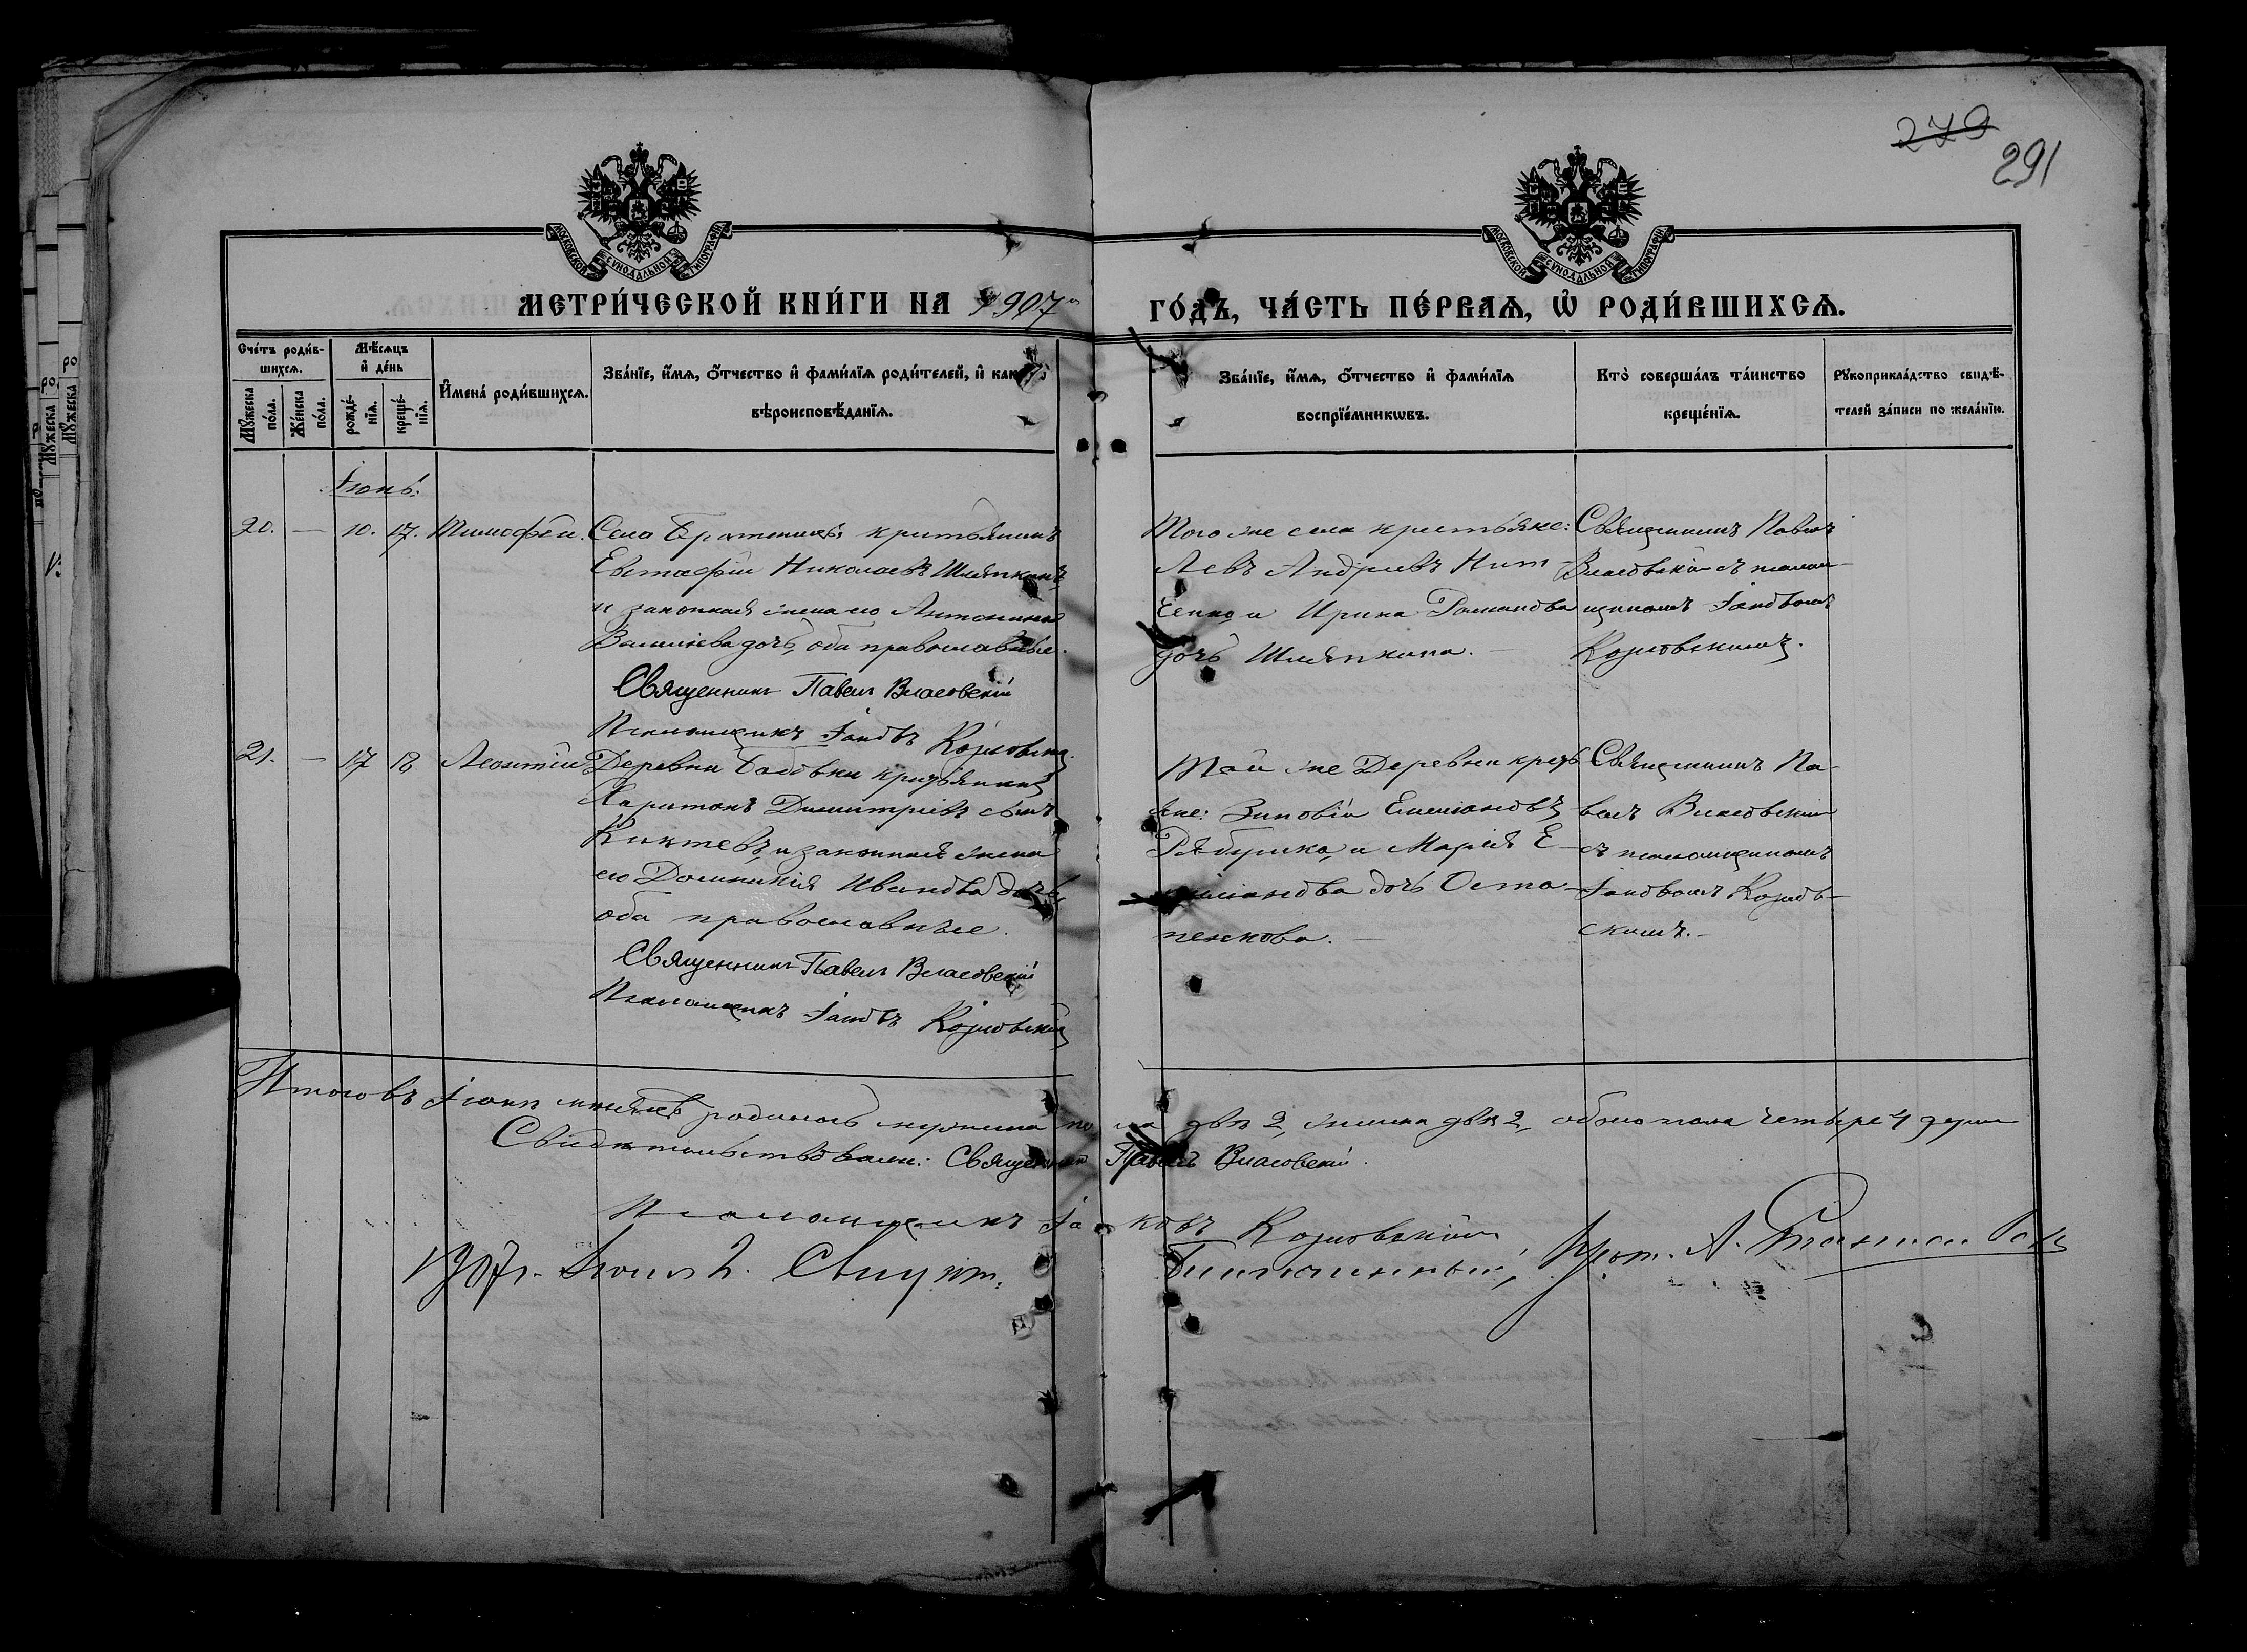 270
291
МОСКОВСКОЙ СУНОДАЛЬНОЙ ТИПОГРАФІИ
МОСКОВСКОЙ СУНОДАЛЬНОЙ ТИПОГРАФІИ
МЕТРИ́ЧЕСКОЙ КНИ́ГИ НА 1907
ГО́ДЪ, ЧА́СТЬ ПЕ́РВАѦ, Ѡ РОДИ́ВШИХСѦ.
Сче́тъ роди́в-
шихсѧ.
Мꙋжеска по́ла.
Же́нска по́ла.
Мѣ́сѧцъ
и де́нь
рожде́-
нїѧ.
креще́-
нїѧ.
Имена́ роди́вшихсѧ.
Зва́нїе, и́мѧ, ѻ́тчество и фами́лїѧ роди́телей, и как
вѣроисповѣ́данїѧ.
Зва́нїе, и́мѧ, ѻ́тчество и фами́лїѧ
воспрїе́мникωвъ.
Кто̀ соверша́лъ та́инство
креще́нїѧ.
Рꙋкоприкла́дство свидѣ́-
телей за́писи по жела́нїю.
Іюнь.
20. — 10. 17. Тимофей. Село крестьянинъ
Евстафій Николаевъ Шляпкинъ
и законная жена его Антонина
Василіева дочь, оба православные.
Священникъ Павелъ Власовскій
Псаломщикъ Іаковъ
Того же села крестьяне:
Левъ Андреевъ Нит-
ченко и Ирина Романова
дочь Шляпкина. —
Священникъ Павелъ
Власовскій съ псалом-
щикомъ Іаковомъ
21. — 17 18. Леонтій Деревни крестьянинъ
Харитонъ Димитріевъ сынъ
и законная жена
его Домникія Иванова дочь,
оба православные.
Священникъ Павелъ Власовскій
Псаломщикъ Іаковъ
Той же Деревни кресть
яне: Зиновій Емеліановъ
Рябушко, и Марія Е-
меліанова дочь Оста-
пенкова. —
Священникъ Па-
велъ Власовскій
съ псаломщикомъ
Іаковомъ
скимъ. —
Итого въ Іюнѣ мѣсяцѣ родилось мужеска пола два 2, женска два 2, обоего пола четыре 4 души
Свидѣтельствовали: Священникъ Павелъ Власовскій.
Псаломщикъ Іаковъ
1907 г. Іюля 2. Свидѣт. Благочинный, Прот. А.